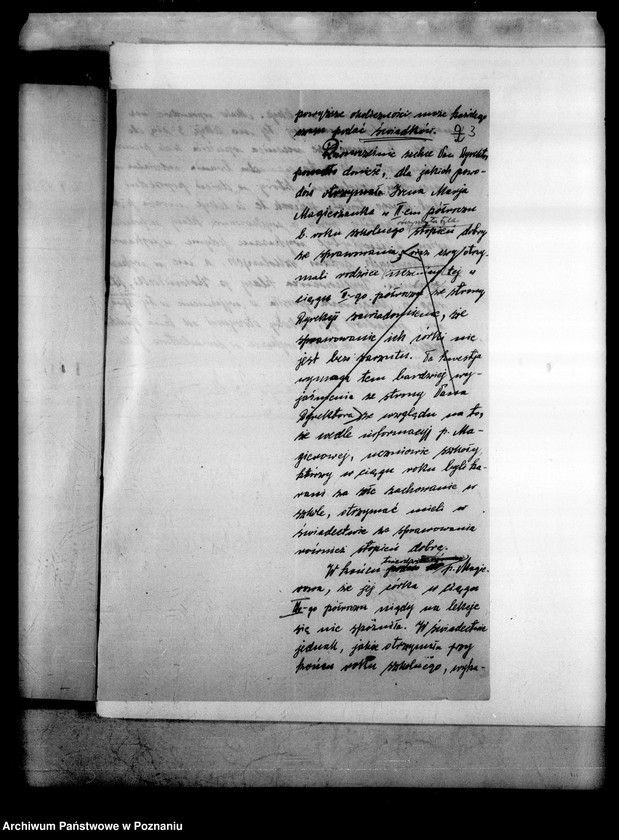 powyższe okoliczności może każdego
czasu podać świadków. 3
Równocześnie zechce Pan Dyrektor
donieść, dla jakich powo-
dów otrzymała Irena Marja
Magierzanka w II-em półroczu
b. roku szkolnego stopień dobry
ze sprawowania, oraz czy otrzy-
mali rodzice uczennicy tej w
ciągu I-go półrocza ze strony
Dyrekcji zawiadomienie, że
sprawowanie ich córki nie
jest bez zarzutu. Ta kwestja
wymaga tem bardziej wy-
jaśnienia ze strony Pana
Dyrektora, że względu na to,
że wedle informacyj p. Ma-
gierowej, uczniowie szkoły,
którzy w ciągu roku byli ka-
rani za złe zachowanie w
szkole, otrzymać mieli w
świadectwie ze sprawowania
również stopień dobry.
W końcu p. Magie-
rowa, że jej córka w ciągu
II-go półrocza nigdy na lekcje
się nie spóźniła. W świadectwie
jednak, jakie otrzymała przy
końcu roku szkolnego, wyka-
Archiwum Państwowe w Poznaniu